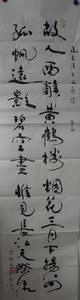 故人西辭黃鶴樓烟花三月下揚州
孤帆遠影碧空盡惟見長江天際流